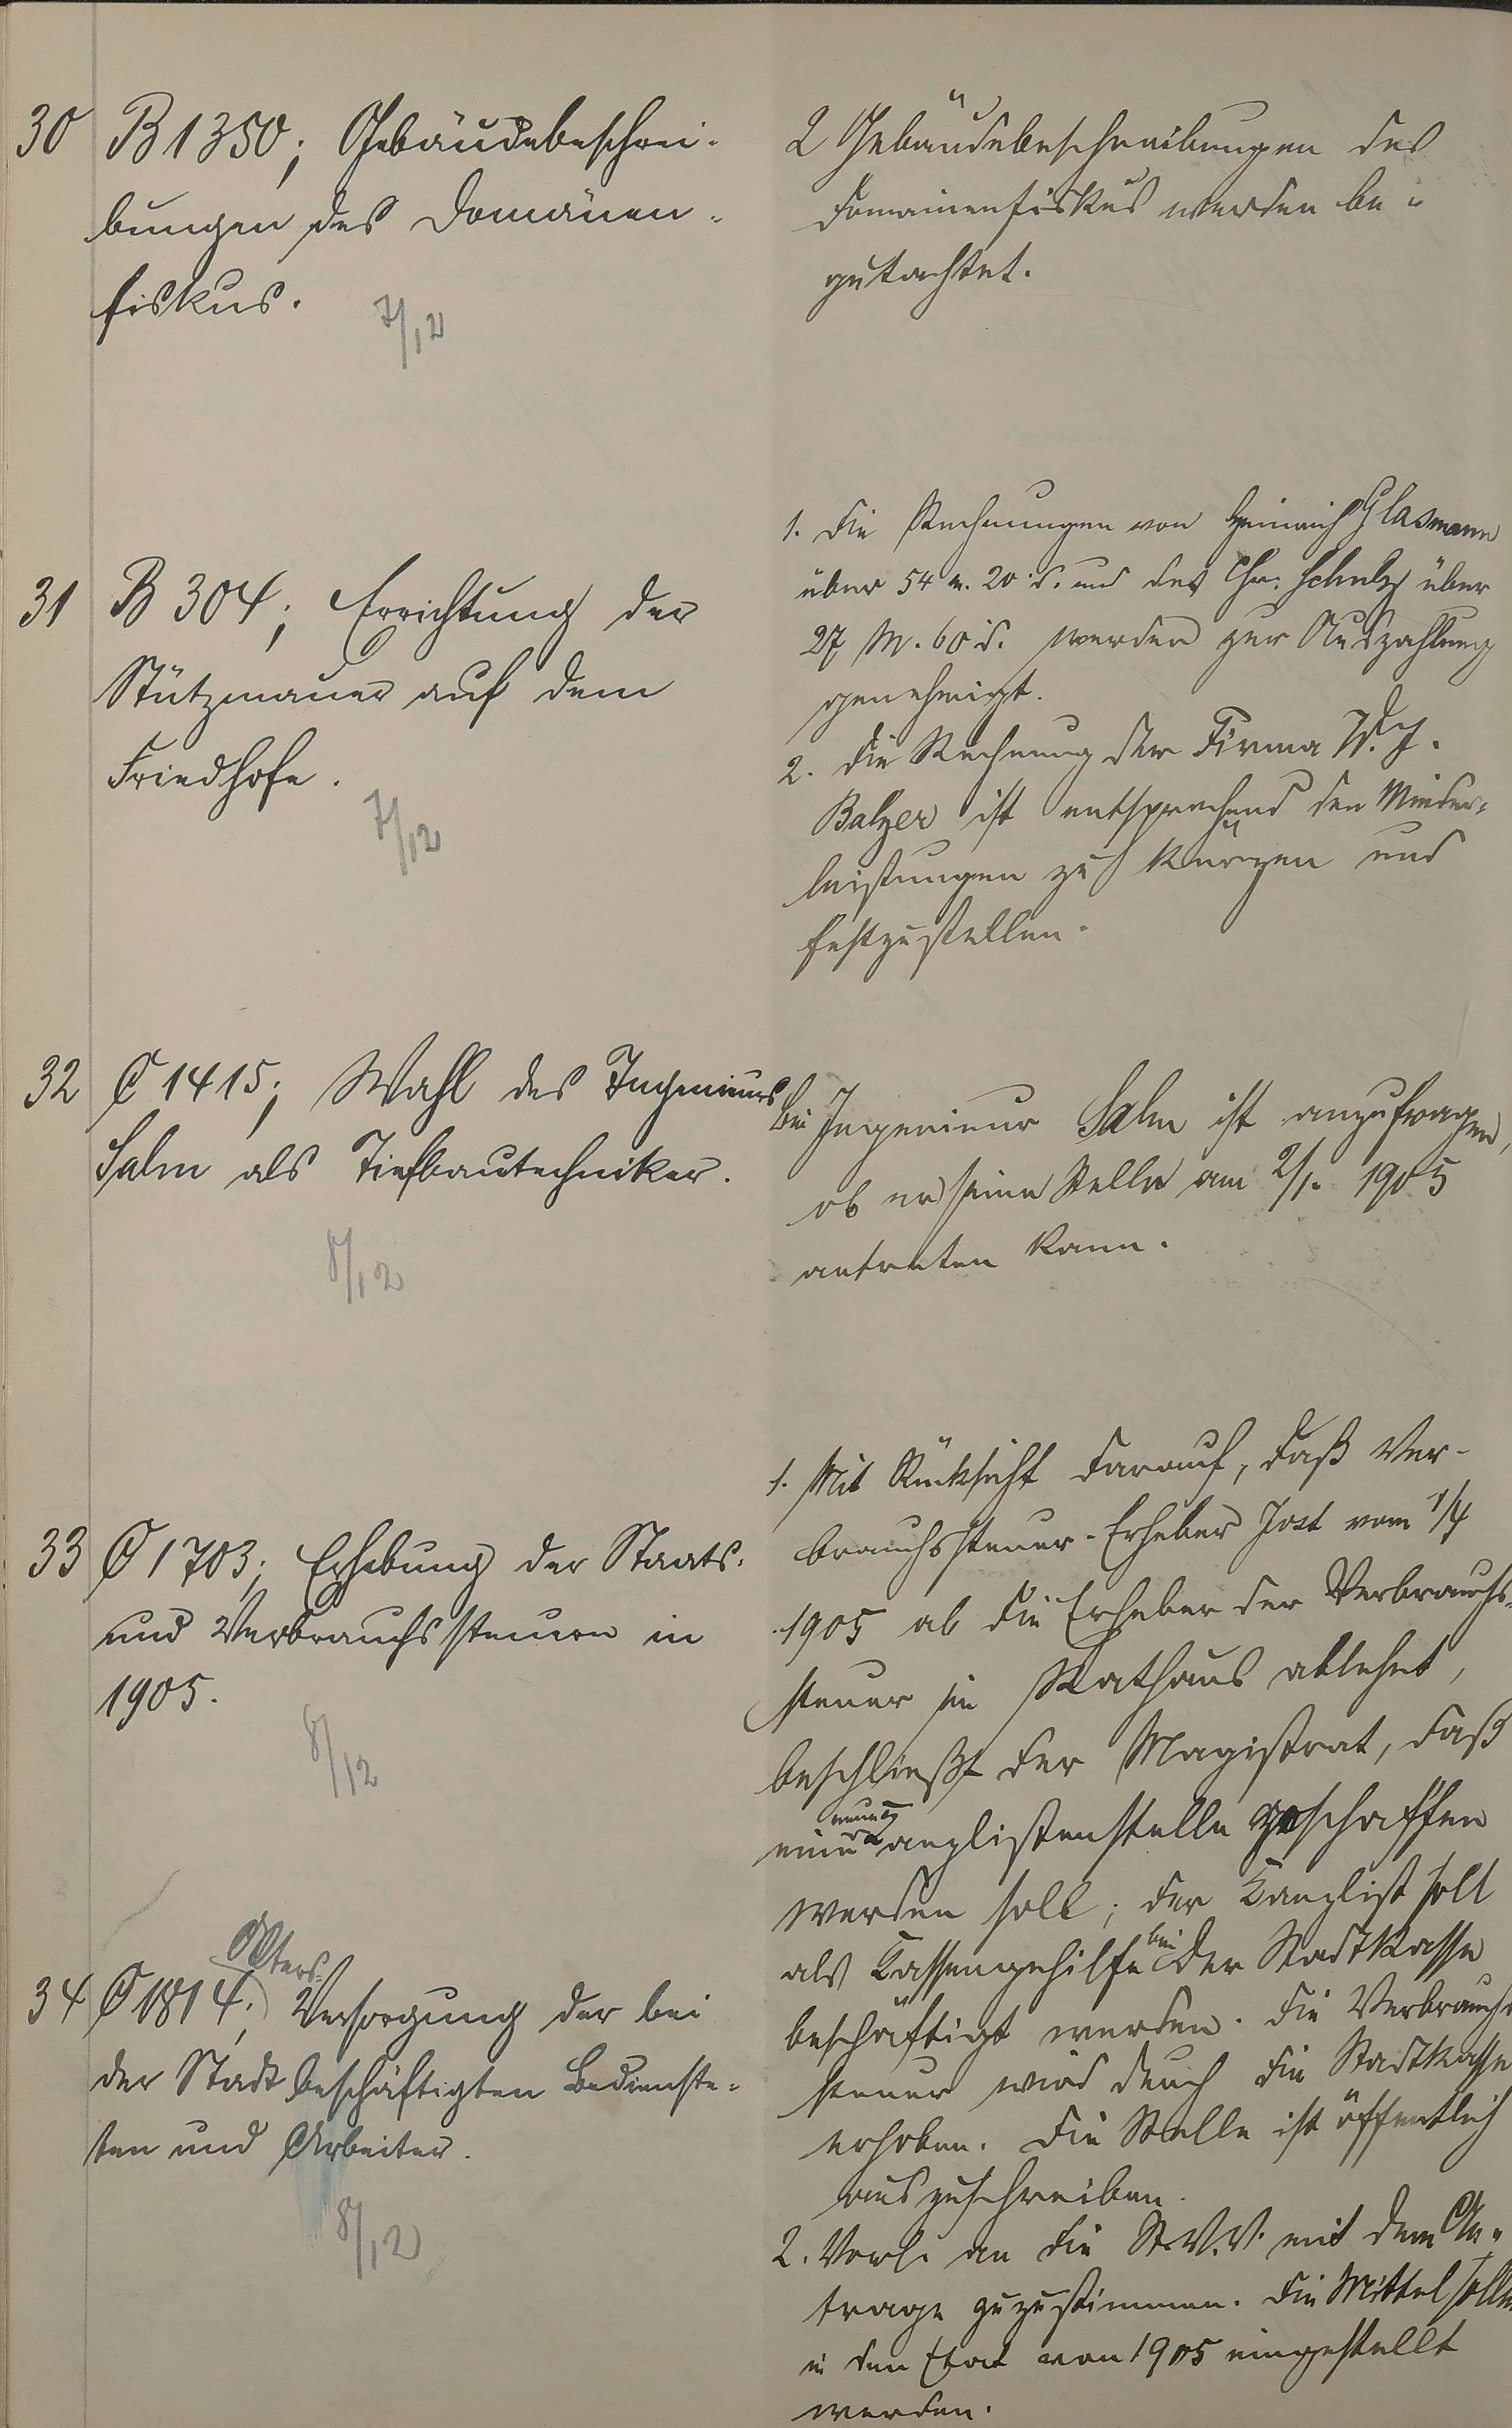 30 B 1350; Gebäudebeschrei-
bungen des Domänen-
fiskus.
7/12
2 Gebäudebeschreibungen des
Domainenfiskus werden be-
gutachtet.
31 B 304; Errichtung der
Stützmauer auf dem
Friedhofe.
7/12
1. Die Rechnungen von Heinrich Glasmann
über 54 M. 20 d. und des Chr. Schulz über
27 M. 60 d. werden zur Auszahlung
genehmigt.
2. Die Rechnung der Firma W. J.
Balzer ist entsprechend den Minder-
leistungen zu kürzen und
festzustellen.
32 C 1415; Wahl des Ingenieurs
Salm als Tiefbautechniker.
8/12
Bei Ingenieur Salm ist anzufragen,
ob er seine Stelle am 2/1. 1905
antreten kann.
33 C 1703; Erhebung der Staats-
und Verbrauchssteuern in
1905.
8/12
1. Mit Rücksicht darauf, daß Ver-
brauchssteuer-Erheber Jost vom 1/4
1905 ab die Erheber der Verbrauchs-
steuer im Rathaus ablehnt,
beschließt der Magistrat, daß
eine neue Kanzlistenstelle geschaffen
werden soll; der Kanzlist soll
als Kassengehilfe bei der Stadtkasse
beschäftigt werden. Die Verbrauchs
steuer wird durch die Stadtkasse
erhoben. Die Stelle ist öffentlich
auszuschreiben.
2. Vorl. an die St.V.V. mit dem An-
trage zuzustimmen. Die Mittel sollen
in den Etat von 1905 eingestellt
werden.
34 C 1814; Alters-Versorgung der bei
der Stadt beschäftigten Bedienste-
ten und Arbeiter.
8/12